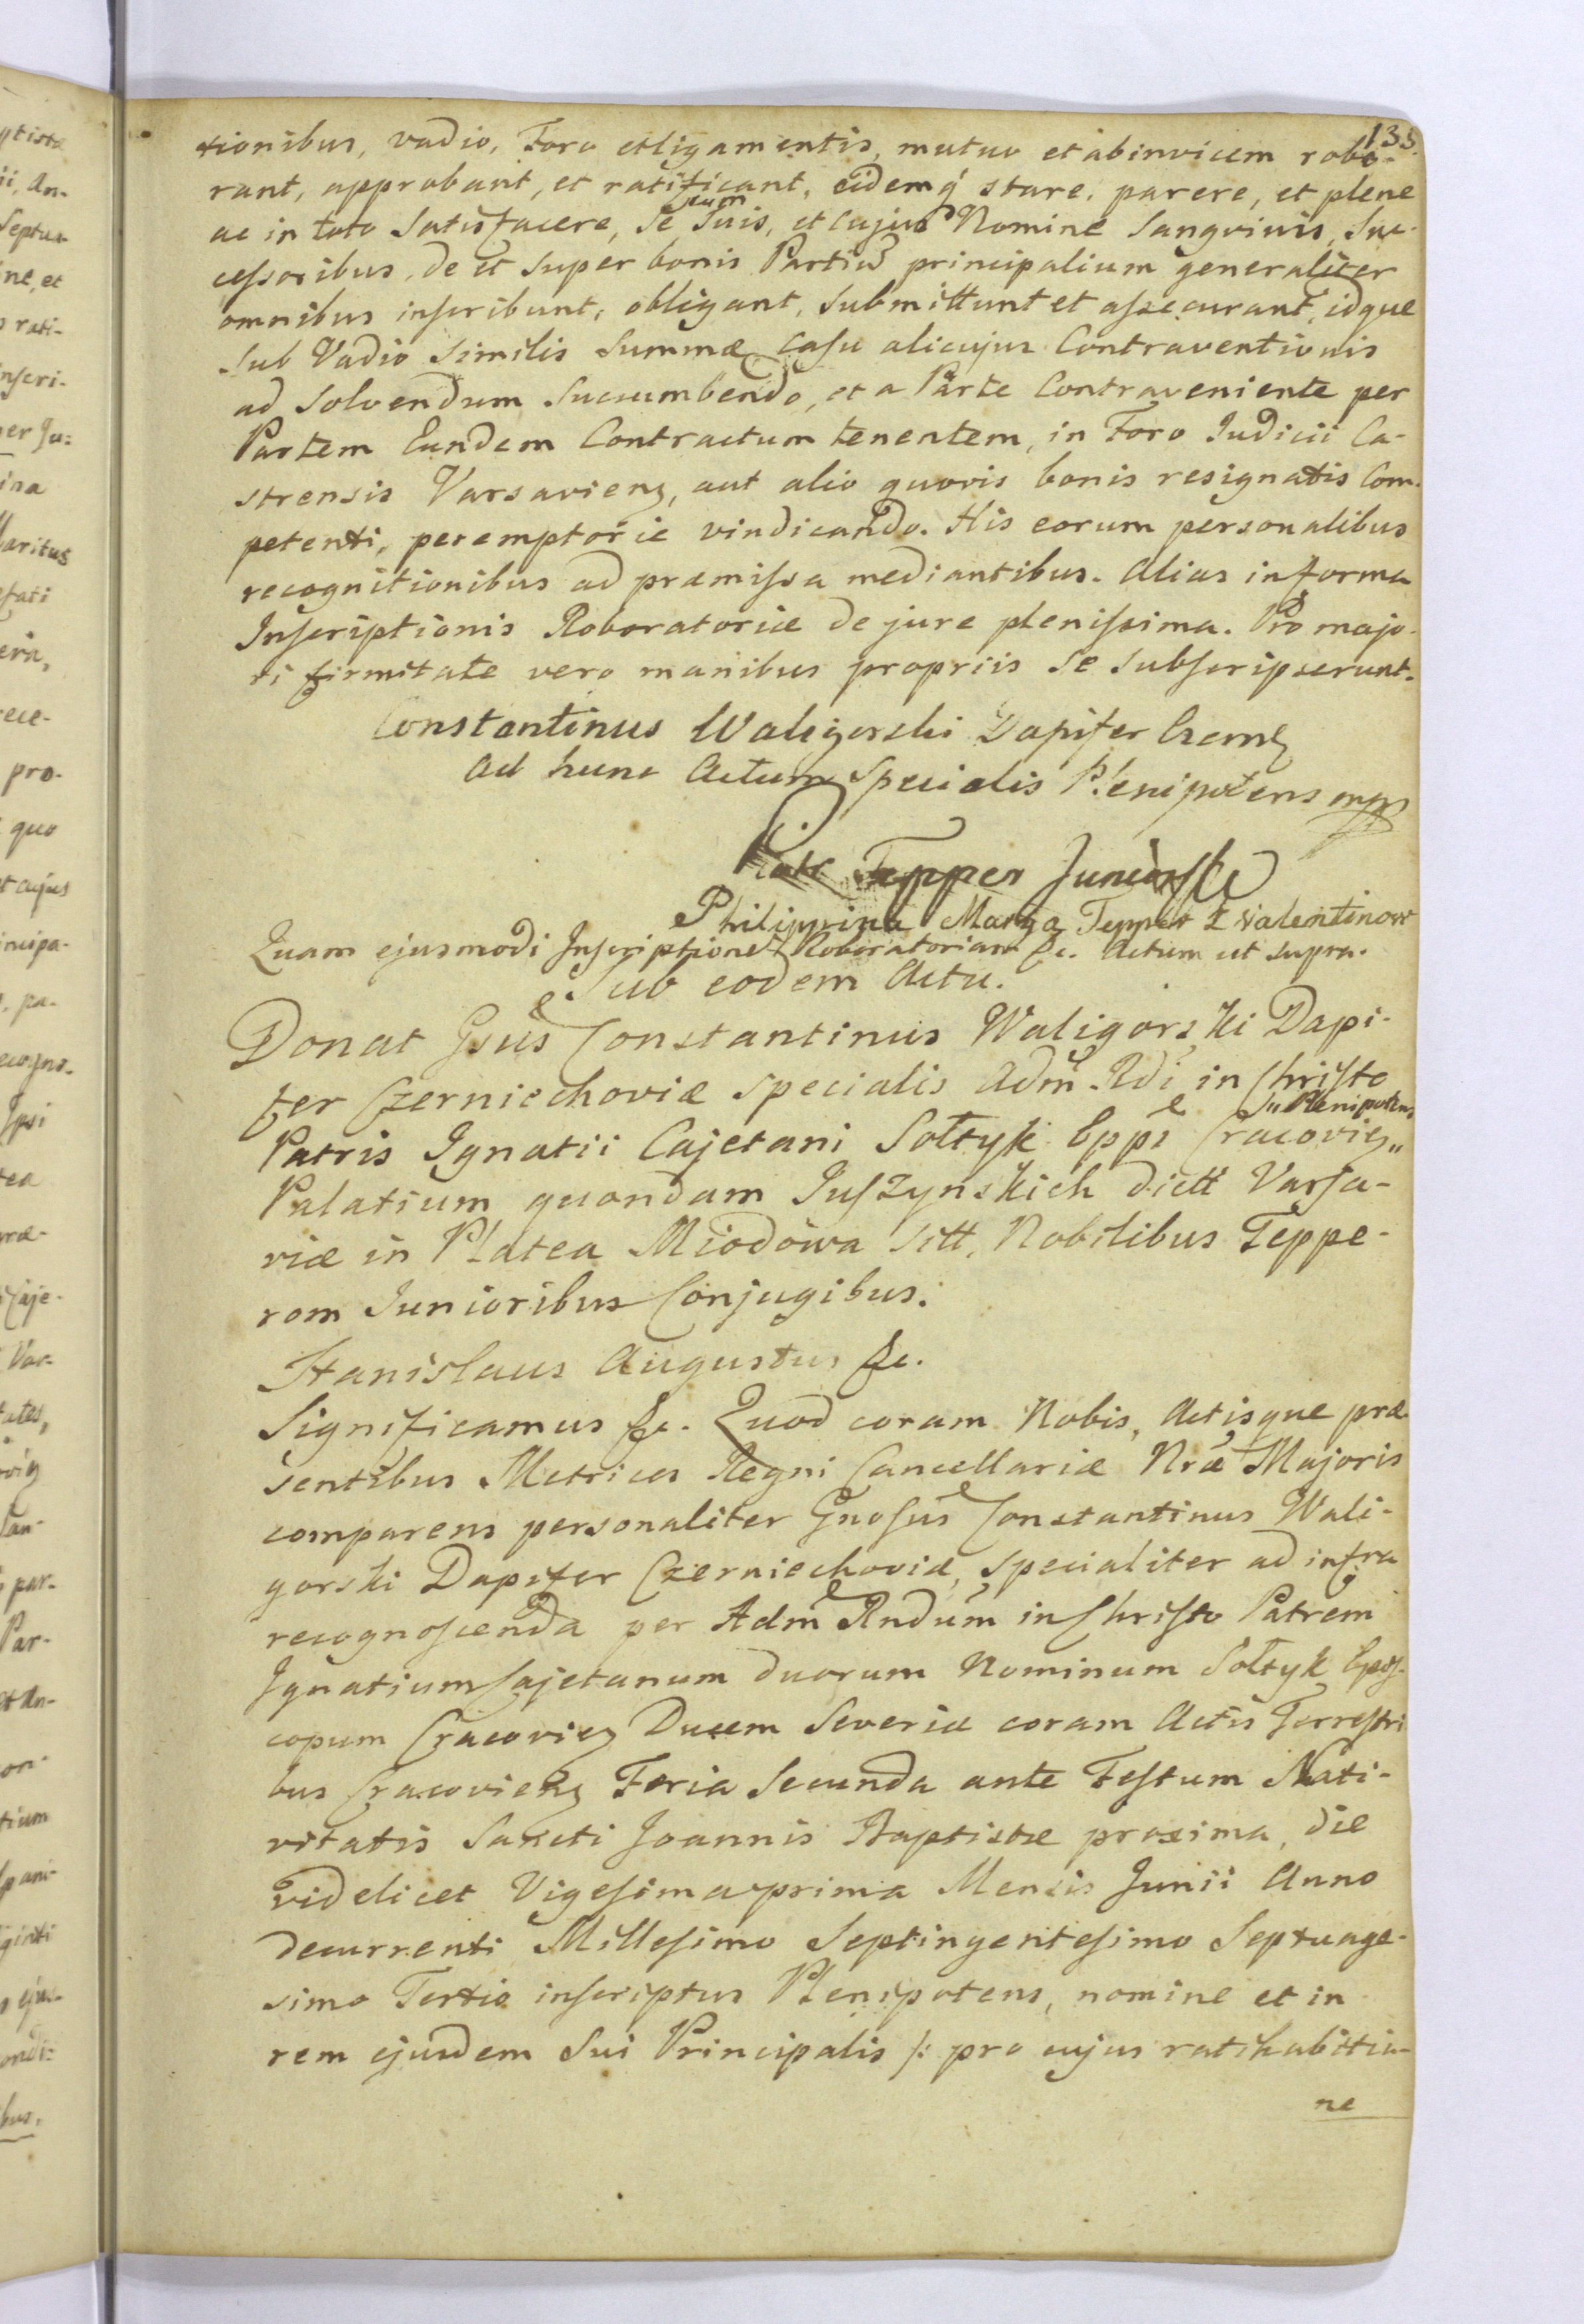 135.
tionibus, vadio, Foro et ligamentis, mutuo et ab invicem robo-
rant, approbant, et ratificant, eidemq́ stare, parere, et plene
ac in toto Satisfacere, Se cum Suis, et cujus Nomine Sangvinis, Suc-
cessoribus, de et super bonis Partiũ principalium generaliter
omnibus inscribunt, obligant, Submittunt et assecurant, idque
Sub Vadio Similis Summæ casu alicujus Contraventionis
ad Solvendum Succumbendo, et a Parte Contraveniente per
Partem Eundem Contractum tenentem, in Foro Judicii Ca-
strensis Varsavienς, aut alio quovis bonis resignatis Com-
petenti, peremptorie vindicando. His eorum personalibus
recognitionibus ad præmissa mediantibus. Alias in forma
Inscriptionis Roboratoriæ de jure plenissima. Pro majo-
ri firmitate vero manibus propriis Se Subscripserunt.
Constantinus Waligorski Dapifer Czernς
Ad hunc Actum Specialis Plenipotens mpp
Piotr Tepper Junior
Philippina Marya Tepper z Valentinow
Quam ejusmodi Inscriptionem Roboratoriam &c. Actum ut supra.
Sub eodem Actu.
Donat Gsus Constantinus Waligorski Dapi-
fer Czerniechoviæ Specialis Adm̃ Rdi in Christo
„Plenipotens
Patris Ignatii Cajetani Sołtyk Eppi Cracovieς„
Palatium quondam Juszynskich dictt Varsa-
viæ in Platea Miodowa sitt, Nobilibus Teppe-
rom Junioribus Conjugibus.
Stanislaus Augustus &c.
Significamus &c. Quod coram Nobis, Actisque præ-
sentibus Metrices Regni Cancellariæ Nræ Majoris
comparens personaliter Gnosus Constantinus Wali-
gorski Dapifer Czerniechoviæ, specialiter ad infra
recognoscenda per Adm̃ Rndum in Christo Patrem
Ignatium Cajetanum duorum Nominum Sołtyk Epis-
copum Cracovieς Ducem Severiæ coram Actis Terrestri
bus Cracovienς Feria Secunda ante Festum Nati-
vitatis Sancti Joannis Baptistæ proxima, die
videlicet Vigesima prima Mensis Junii Anno
decurrenti Millesimo Septingentesimo Septuage-
simo Tertio inscriptus Plenipotens, nomine et in
rem ejusdem Sui Principalis /: pro cujus ratihabitio-
ne